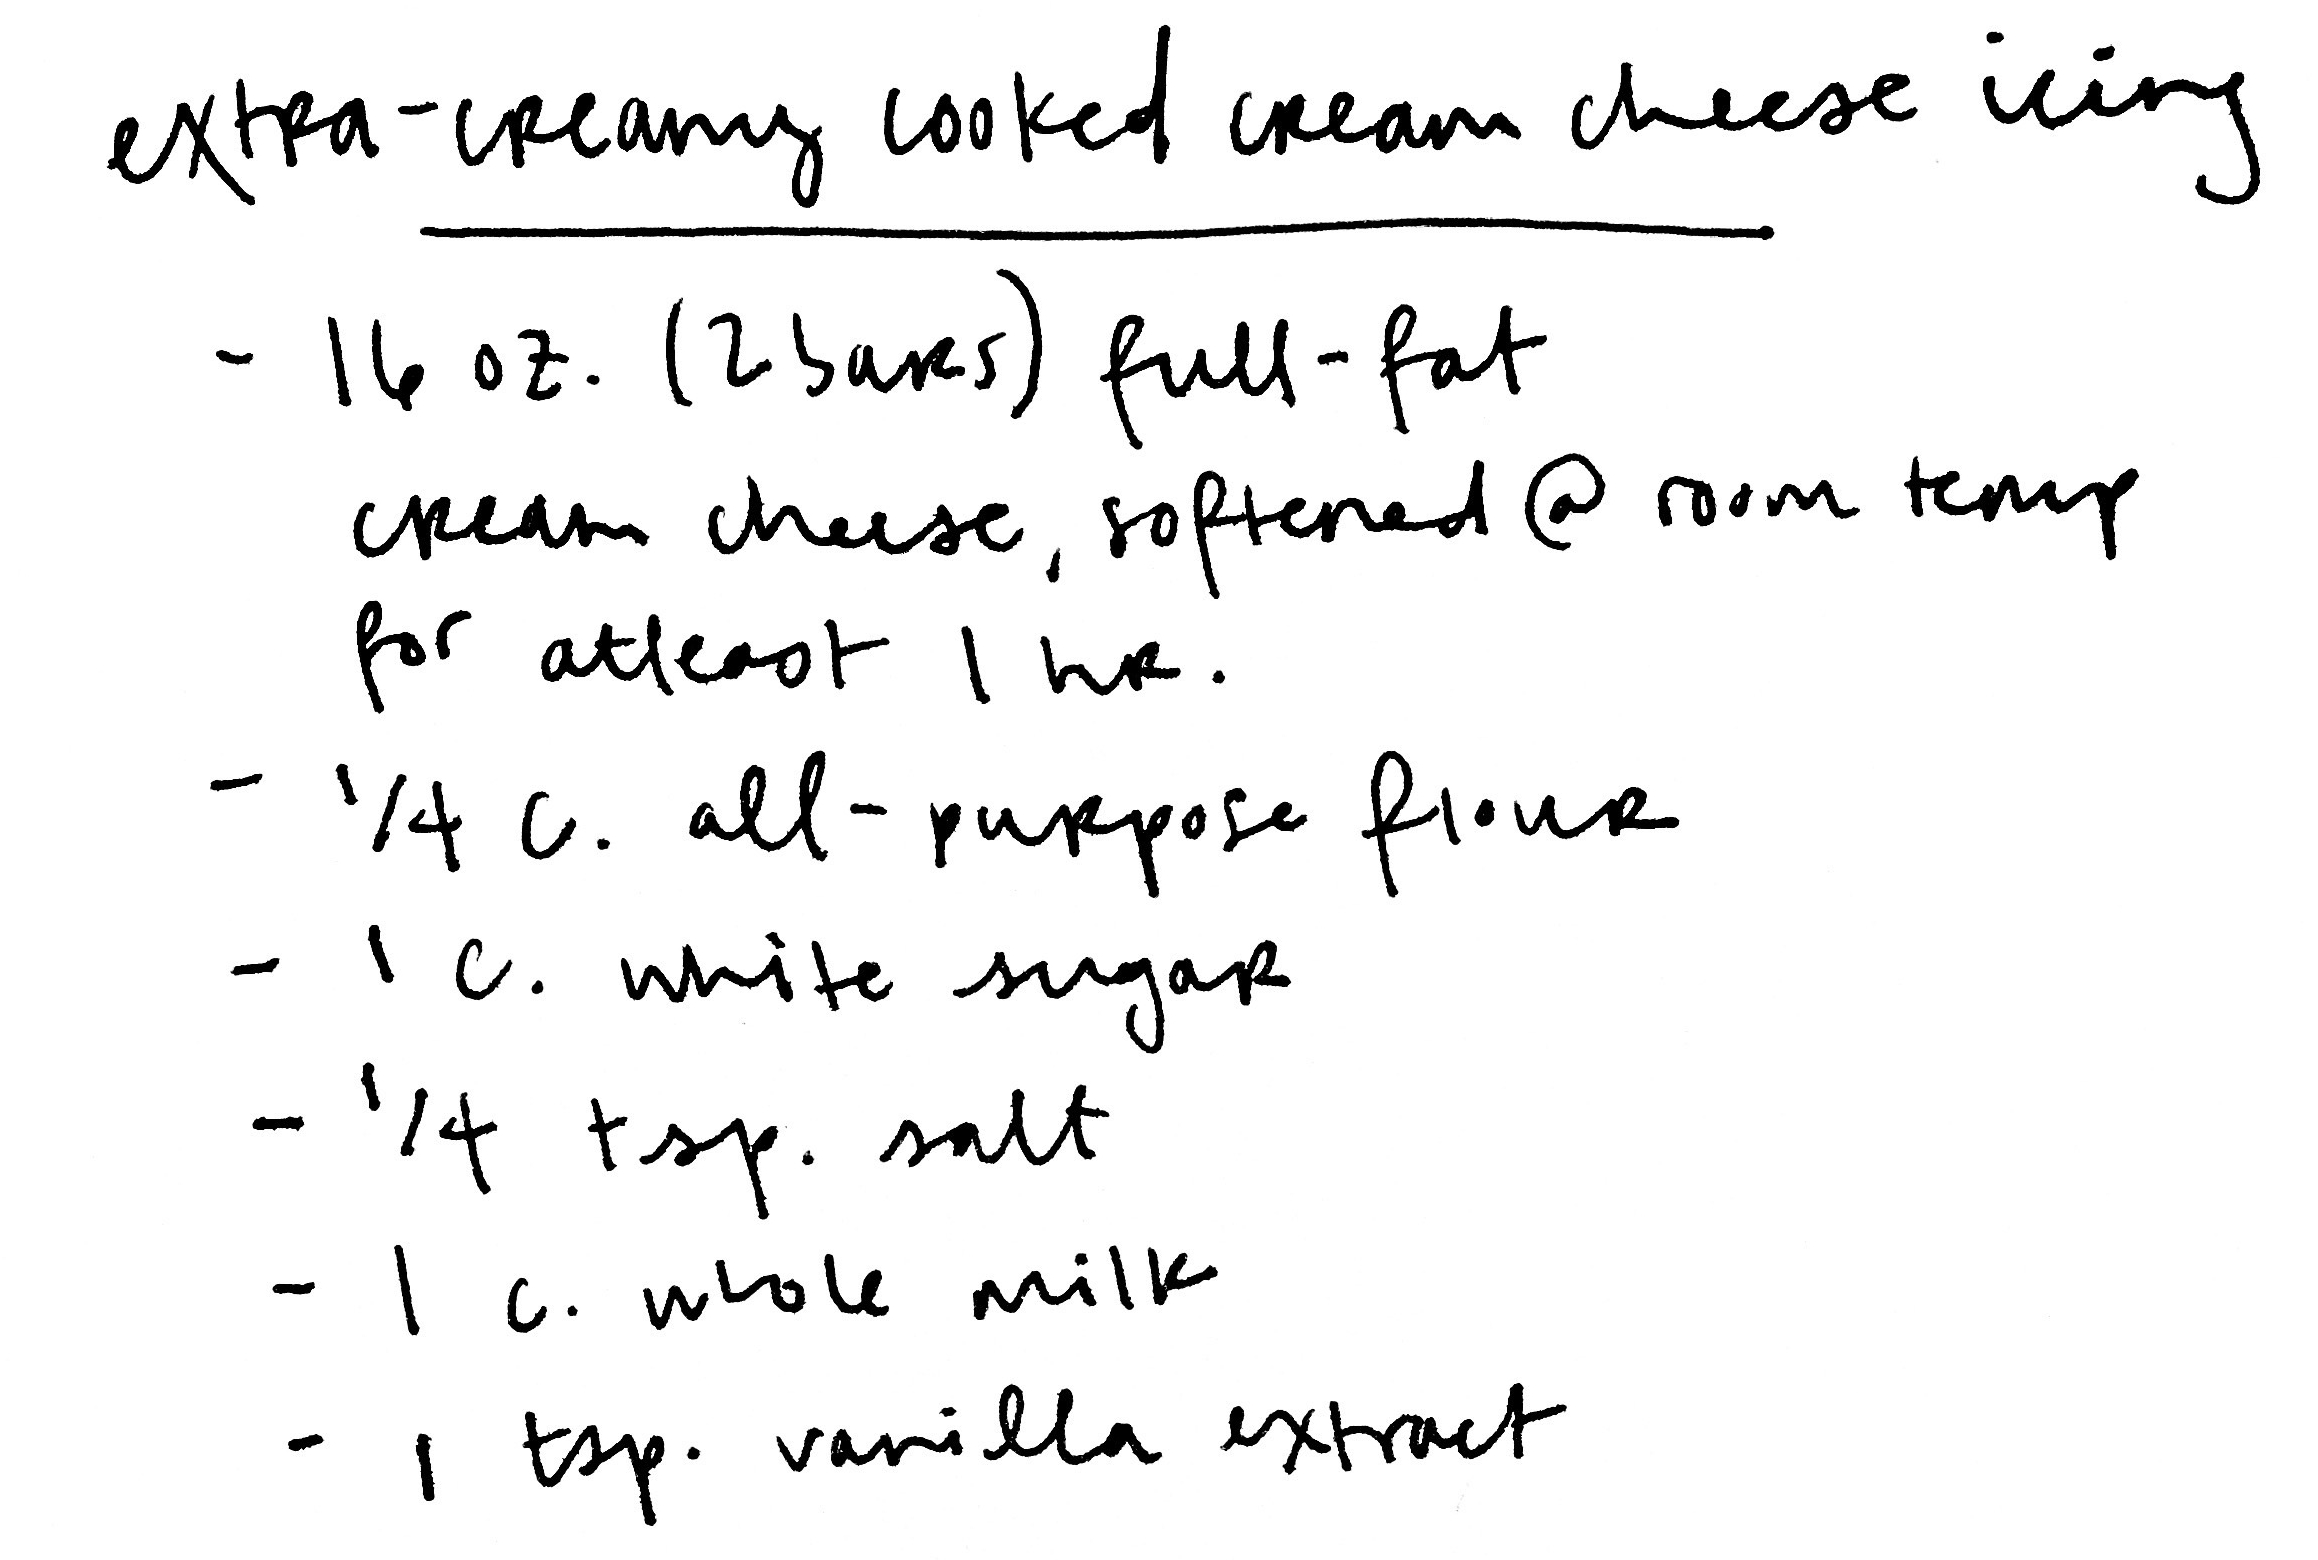 extra-creamy cooked cream cheese icing
- 16 oz. (2 bars) full-fat
cream cheese, softened @ room temp
for atleast 1 hr.
- 1/4 c. all-purpose flour
- 1 c. white sugar
- 1/4 tsp. salt
- 1 c. whole milk
- 1 tsp. vanilla extract